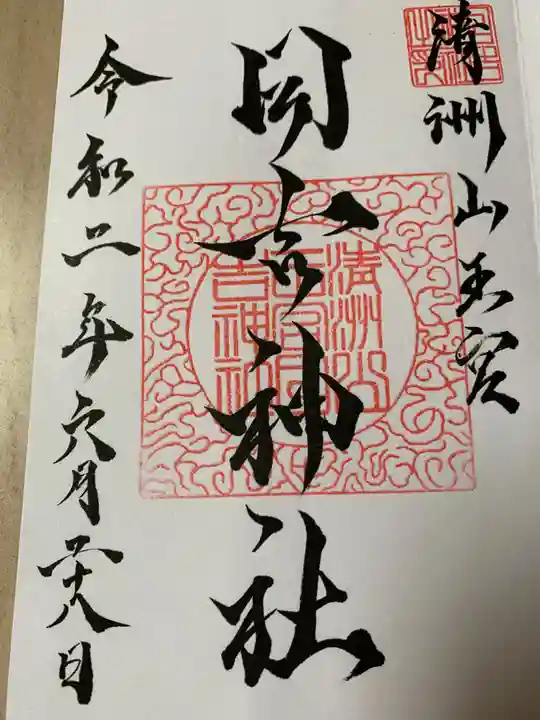 清洲山王宮
日吉神社
令和二年六月二十八日
清洲山
王宮日
吉神社